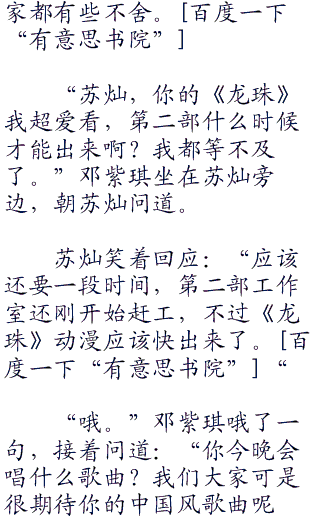 家都有些不舍。[百度一下
“有意思书院”]
“苏灿，你的《龙珠》
我超爱看，第二部什么时候
才能出来啊？我都等不及
了。”邓紫琪坐在苏灿旁
边，朝苏灿问道。
苏灿笑着回应：“应该
还要一段时间，第二部工作
室还刚开始赶工，不过《龙
珠》动漫应该快出来了。[百
度一下“有意思书院”]“
“哦。”邓紫琪哦了一
句，接着问道：“你今晚会
唱什么歌曲？我们大家可是
很期待你的中国风歌曲呢